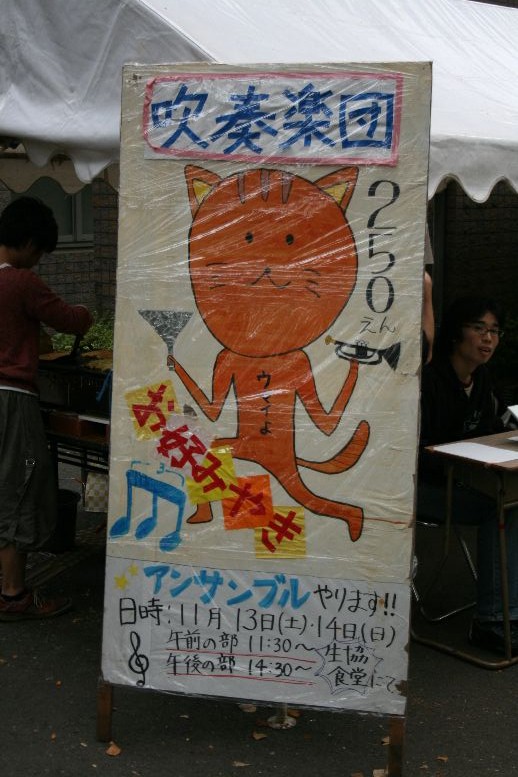 吹奏楽団
250
えん
ウマイよ
お好みやき
3
アンサンブル やります!!
日時:11月13日(土)・14日(日)
午前の部 11:30〜
午後の部 14:30〜
生協
食堂にて